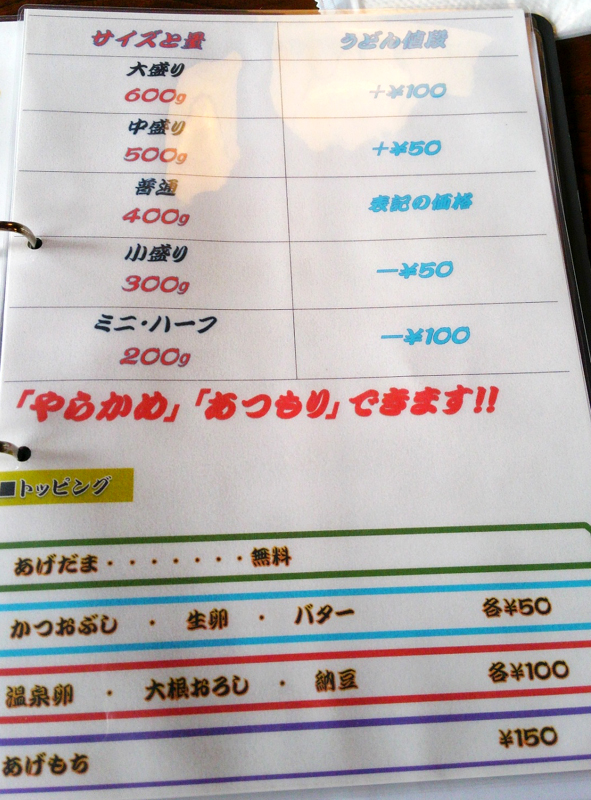 サイズと量 うどん値段
大盛り
600g +¥100
中盛り
500g +¥50
普通
400g 表記の価格
小盛り
300g —¥50
ミニ・ハーフ
200g —¥100
「やらかめ」「あつもり」できます!!
■トッピング
あげだま・・・・・・・無料
かつおぶし ・ 生卵 ・ バター 各¥50
温泉卵 ・ 大根おろし ・ 納豆 各¥100
あげもち ¥150